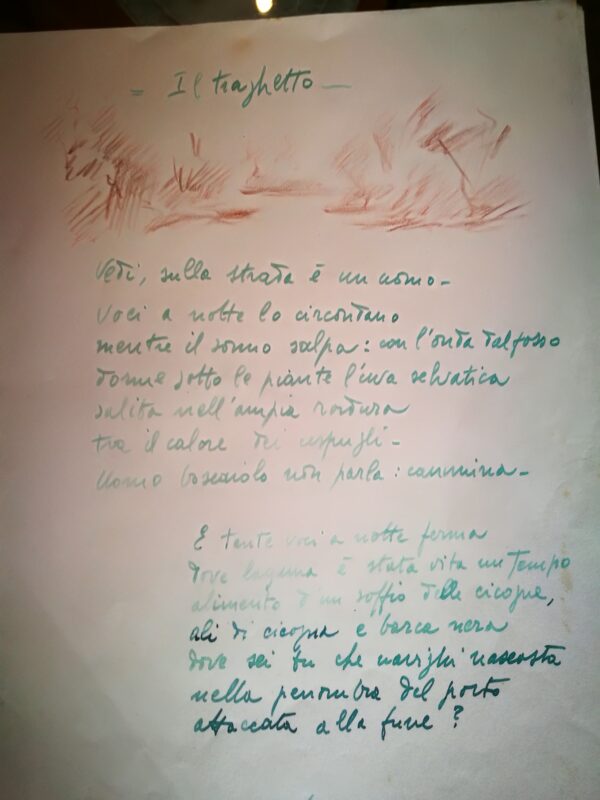 = Il traghetto —
Vedi, sulla strada è un uomo -
Voci a notte lo circondano
mentre il sonno salpa: con l'onda dal fosso
dorme sotto le piante l'uva selvatica
salita nell'ampia
tra il calore dei cespugli -
Uomo boscaiolo non parla: cammina -
E tante voci a notte ferma
dove laguna è stata vita un tempo
alimento d'un soffio delle cicogne,
ali di cicogna e barca nera
dove sei tu che navighi nascosta
nella penombra del porto
attaccata alla fune?